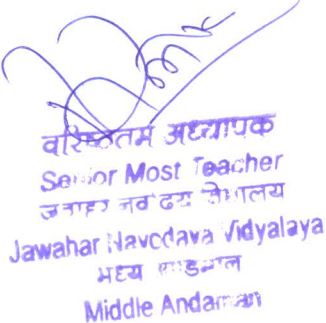 वरिष्ठतम अध्यापक
Senior Most Teacher
जवाहर नवोदय विद्यालय
Jawahar Navodaya Vidyalaya
मध्य अण्डमान
Middle Andaman